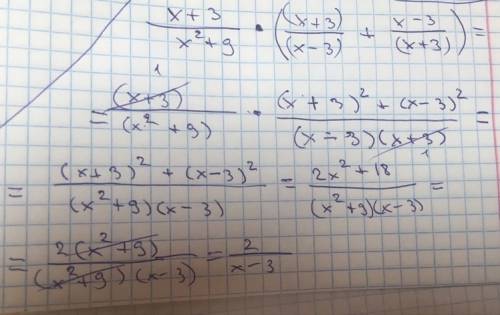 x+3/x²+9 · ((x+3)/(x-3) + x-3/(x+3)) =
= (x+3)/(x²+9) · (x+3)²+(x-3)²/(x-3)(x+3) = 1 1
= (x+3)²+(x-3)²/(x²+9)(x-3) = 2x²+18/(x²+9)(x-3) =
= 2(x²+9)/(x²+9)(x-3) = 2/x-3